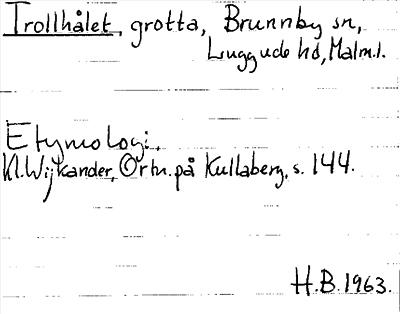 Trollhålet, grotta, Brunnby sn,
Luggude hd, Malm.l.
Etymologi.
Kl. Wijkander, Ortn. på Kullaberg, s. 144.
H.B. 1963.